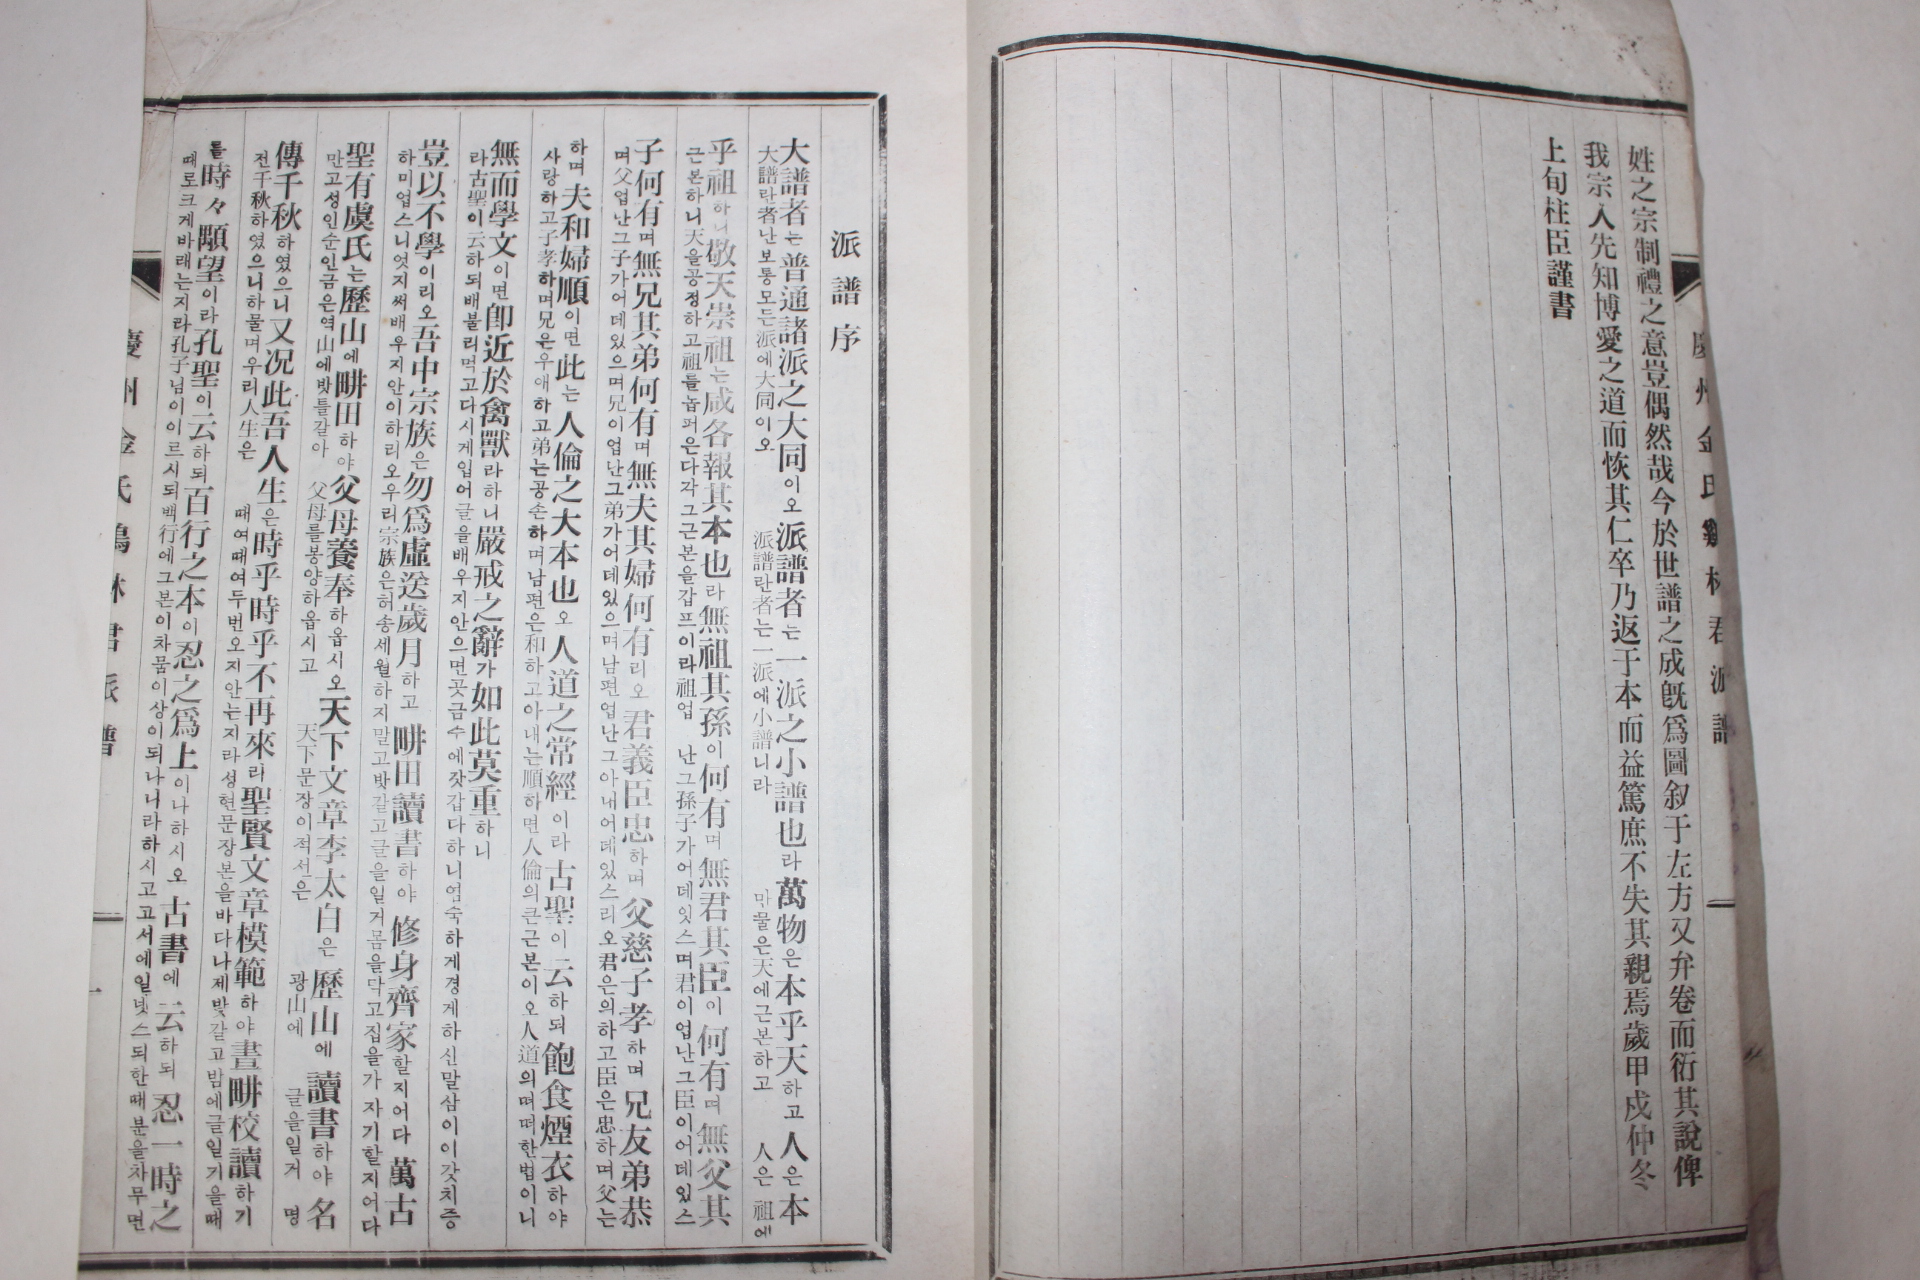 姓之宗制禮之意豈偶然哉今於世譜之成旣爲圖叙于左方又弁卷而衍其說俾
我宗人先知博愛之道而恢其仁卒乃返于本而益篤庶不失其親焉歲甲戌仲冬
上旬柱臣謹書
慶州金氏鷄林君派譜
派譜序
大譜者는普通諸派之大同이오派譜者는一派之小譜也라萬物은本乎天하고人은本
大譜란者난보통모든派에大同이오 派譜란者는一派에小譜니라 만물은天에근본하고 人은祖에
乎祖하니敬天崇祖는咸各報其本也라無祖其孫이何有며無君其臣이何有며無父其
근본하니天을공경하고祖를놉퍼은다각그근본을갑프이라祖업난그孫子가어데잇스며君이업난그臣이어데있스
子何有며無兄其弟何有며無夫其婦何有리오君義臣忠하며父慈子孝하며兄友弟恭
며父업난그子가어데있으며兄이업난그弟가어데있으며남편업난그아내어데있스리오君은의하고臣은忠하며父는
하며夫和婦順이면此는人倫之大本也오人道之常經이라古聖이云하되飽食煙衣하야
사랑하고子孝하며兄은우애하고弟는공손하며남편은和하고아내는順하면人倫의큰근본이오人道의떠떠한법이니
無而學文이면卽近於禽獸라하니嚴戒之辭가如此莫重하니
라古聖이云하되배불리먹고다시게입어글을배우지안으면곳금수에잣갑다하니엄숙하게경게하신말삼이이갓치증
豈以不學이리오吾中宗族은勿爲虛送歲月하고畊田讀書하야修身齊家할지어다萬古
하미업스니엇지써배우지안이하리오우리宗族은허송세월하지말고밧갈고글을일거몸을닥고집을가자기할지어다
聖有虞氏는歷山에畊田하야父母養奉하옵시오天下文章李太白은歷山에讀書하야名
만고성인순인금은역山에밧틀갈아 父母를봉양하옵시고 天下문장이적선은 광山에 글을일거 명
傳千秋하였으니又况此吾人生은時乎時乎不再來리聖賢文章模範하야晝畊校讀하기
전千秋하였으니하물며우리人生은 때여때여두번오지안는지라성현문장본을바다나제밧갈고밤에글일기을때
를時々顒望이라孔聖이云하되百行之本이忍之爲上이나하시오古書에云하되忍一時之
때로크게바래는지라孔子님이이르시되백行에그본이차뭄이상이되나니라하시고고서에일넛스되한때분을차무면
慶州金氏鷄林君派譜
一